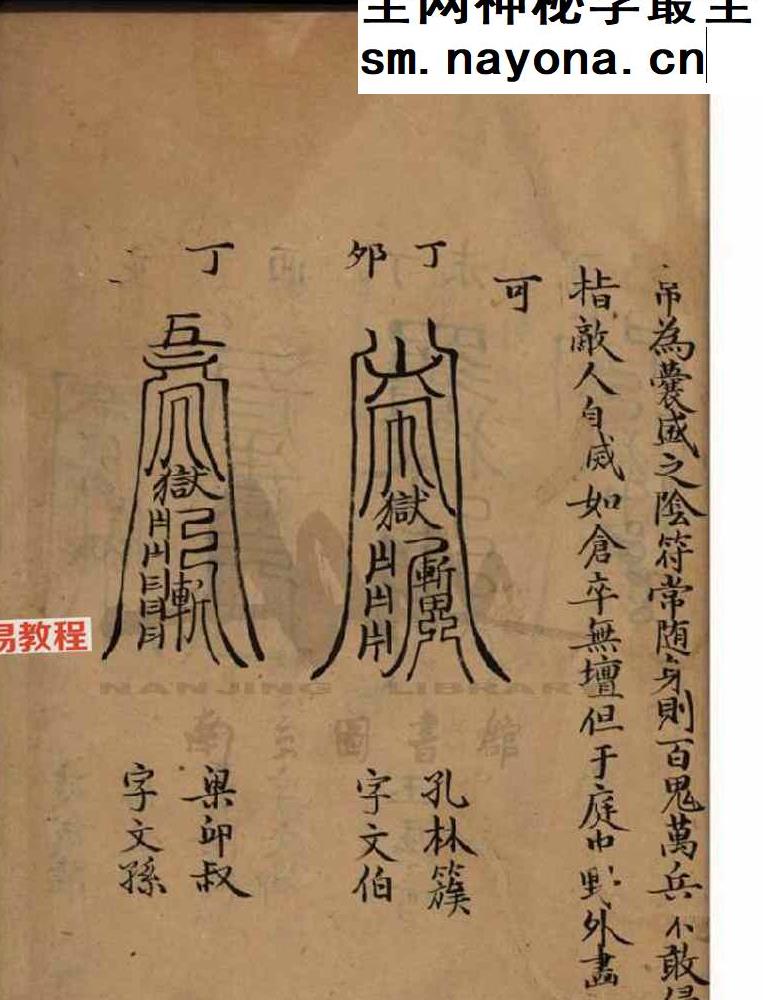 全网神秘学最全
sm.nayona.cn
帛為囊盛之陰符常随身則百鬼萬兵不敢
指敵人自滅如倉卒無壇但于庭中野外畵
可
丁
夘
孔林簇
字文伯
丁
梁卬叔
字文孫
獄
斬
獄
斬
易教程
NANJING LIBRAR
南京圖書館